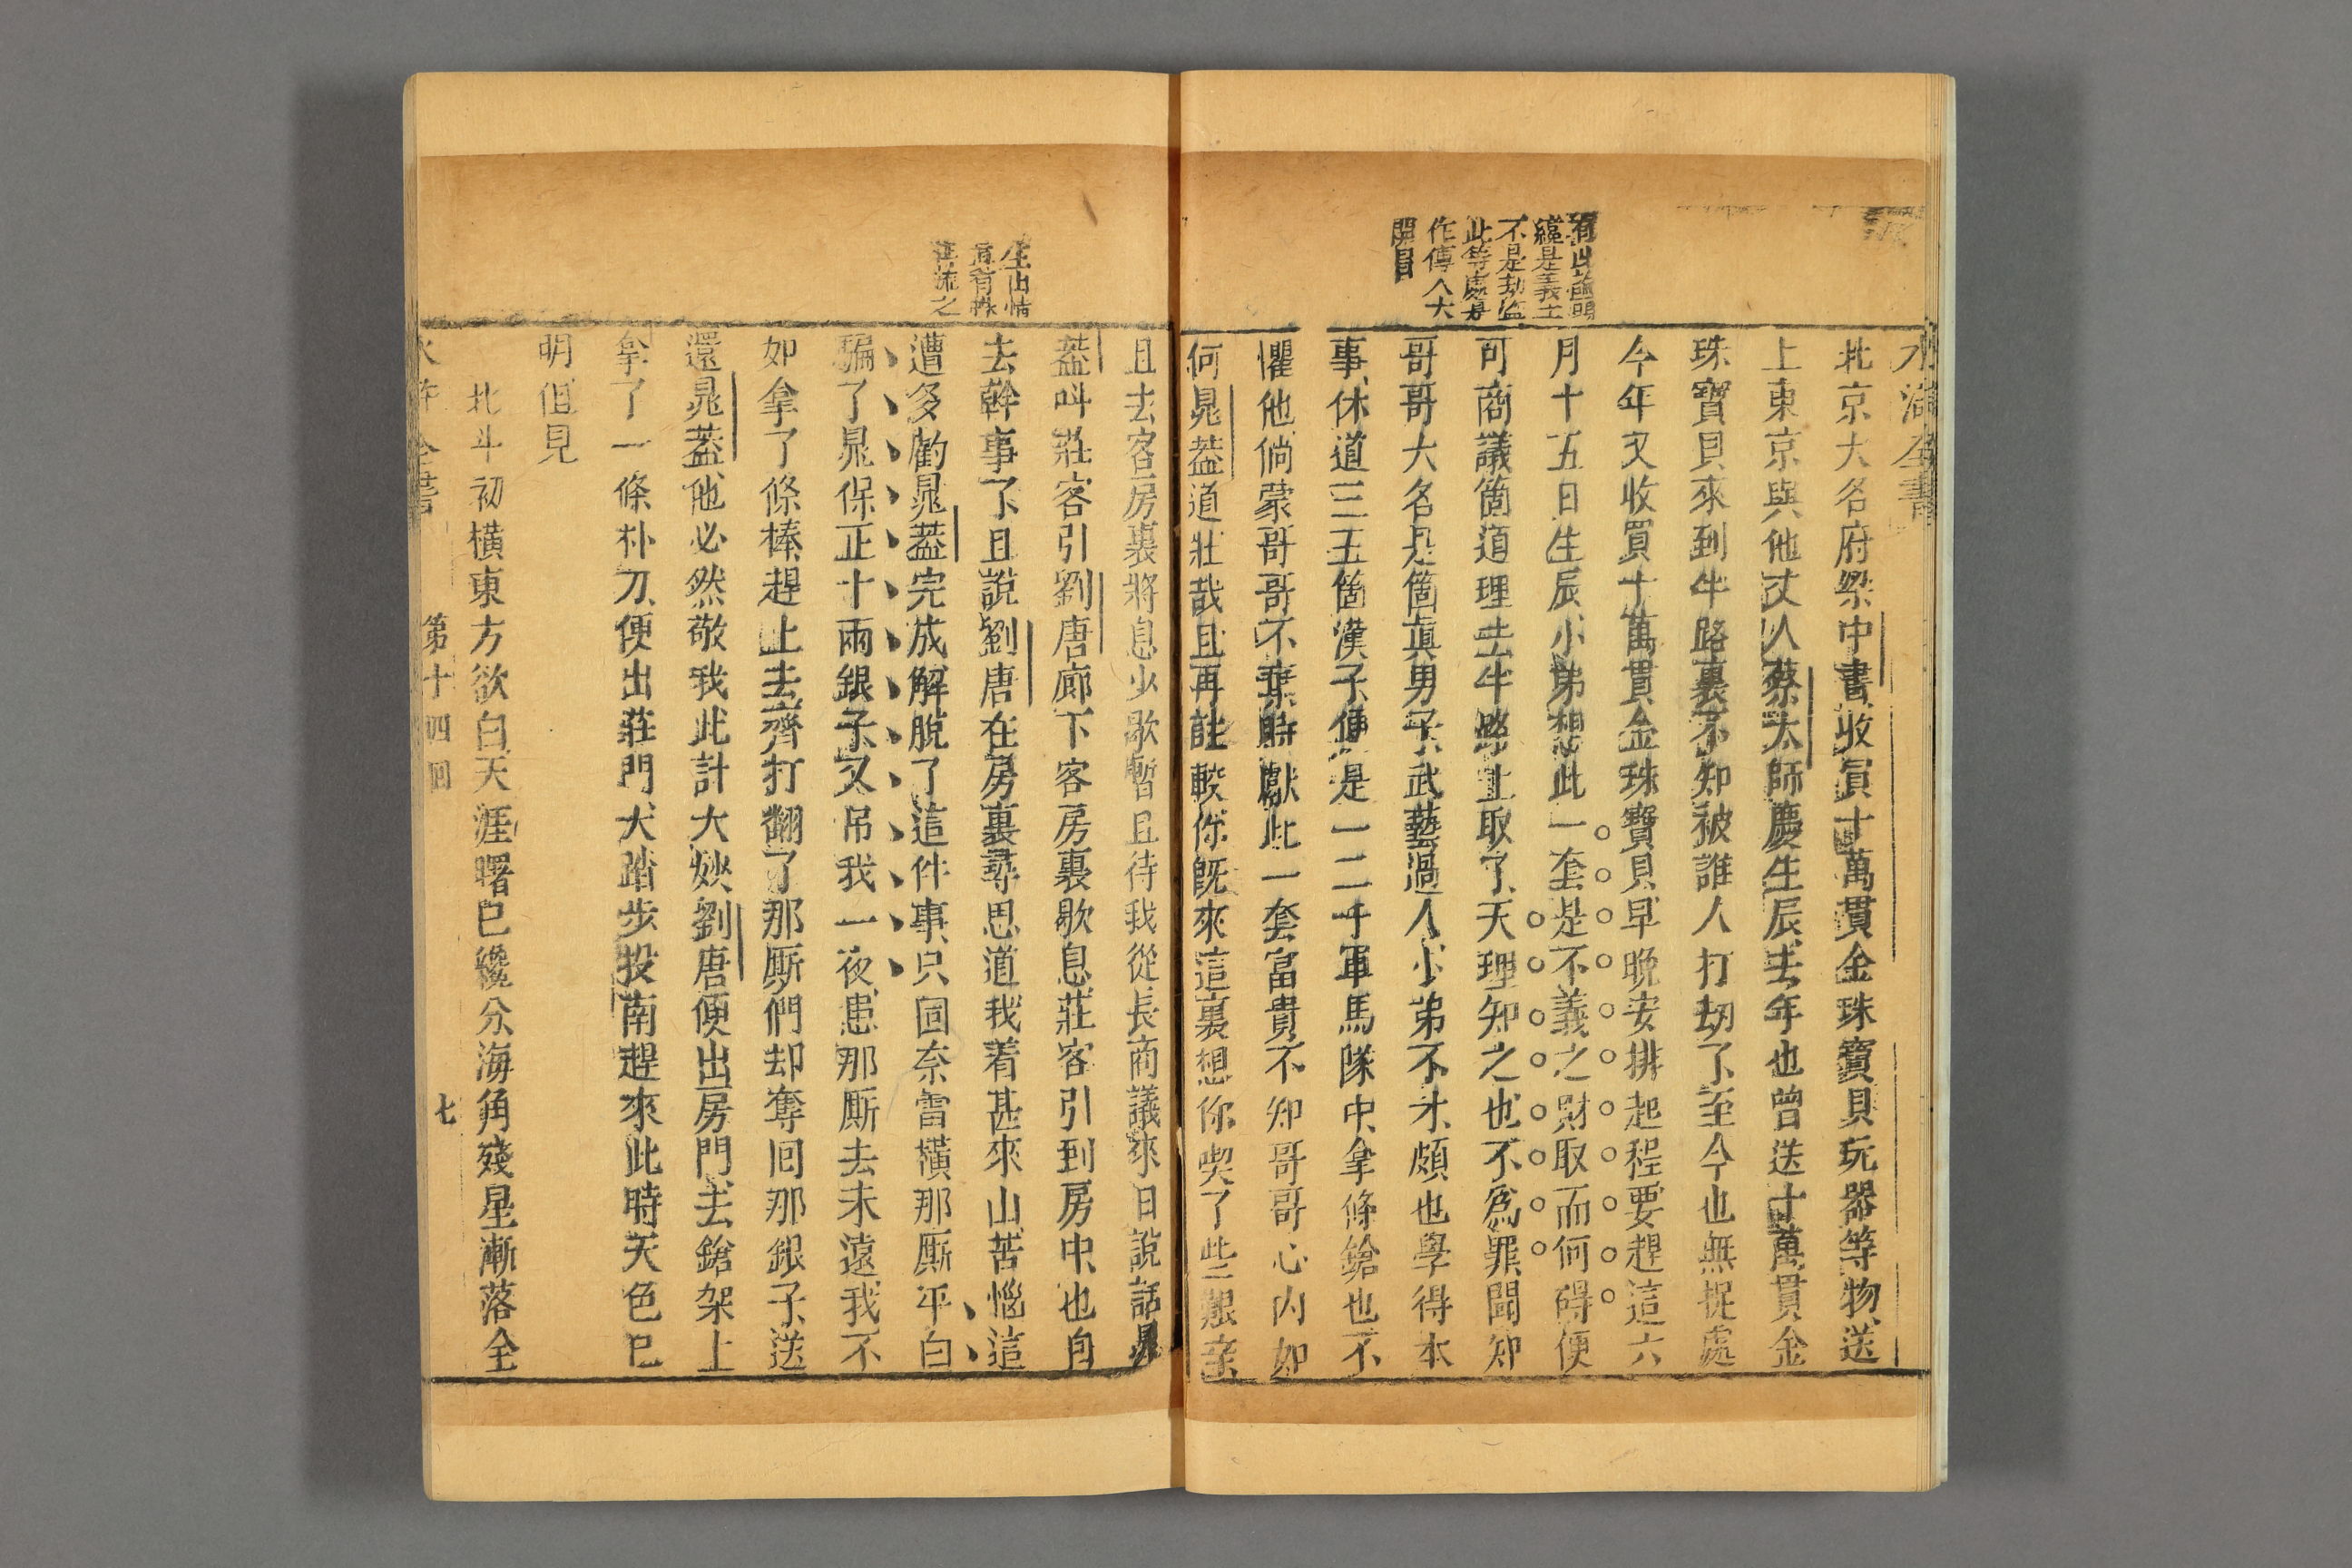 水滸全書
有此議論
纔是義士
不是劫盜
此等處是
作傳人大
開眉
北京大名府梁中書收買十萬貫金珠寶貝玩器等物送
上東京與他丈人蔡太師慶生辰去年也曾送十萬貫金
珠寶貝來到半路裏不知被誰人打刧了至今也無捉處
今年又收買十萬貫金珠寶貝早晚安排起程要趕這六
月十五日生辰小弟想此一套是不義之財取而何碍便
可商議箇道理去半路上取了天理知之也不爲罪聞知
哥哥大名是箇眞男子武藝過人小弟不才頗也學得本
事休道三五箇漢子便是一二千軍馬隊中拿條鎗也不
懼他倘蒙哥哥不棄時獻此一套富貴不知哥哥心內如
何晁蓋道壯哉且再計較你旣來這裏想你喫了些艱辛
且去客房裏將息少歇暫且待我從長商議來日說話晁
蓋叫莊客引劉唐廊下客房裏歇息莊客引到房中也自
去幹事了且說劉唐在房裏尋思道我着甚來山苦惱這
遭多虧晁蓋完成解脫了這件事只囬奈雷橫那厮平白
騙了晁保正十兩銀子又吊我一夜想那厮去未遠我不
如拿了條棒趕上去齊打翻了那厮們却奪回那銀子送
還晁蓋他必然敬我此計大妙劉唐便出房門去鎗架上
拿了一條朴刀便出莊門大踏步投南趕來此時天色已
明但見
北斗初橫東方欲白天涯曙色纔分海角殘星漸落全
生出情
之
水滸全書 第十四囘 七